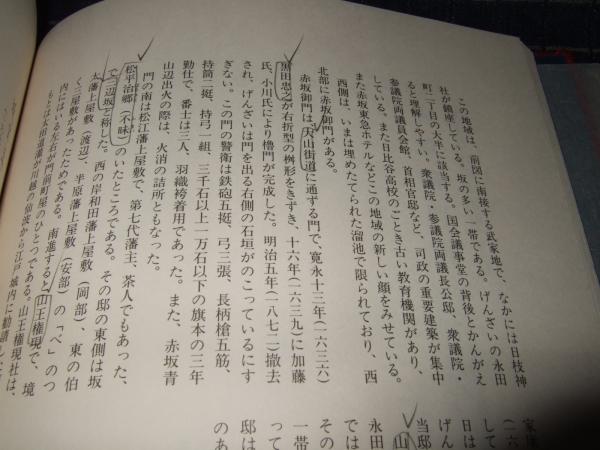 この地域は、前図に南接する武家地で、なかには日枝神
社が鎮座している。坂の多い一帯である。げんざいの永田
町二丁目の大半に該当する。国会議事堂の背後とかんがえ
ると理解しやすい。衆議院・参議院両議長公邸、衆議院・
参議院両議員会館、首相官邸など、司政の重要建築が集中
している。また日比谷高校のごとき古い教育機関があり、
また赤坂東急ホテルなどこの地域の新しい顔をみせている。
西側は、いまは埋めたてられた溜池で限られており、西
北部に赤坂御門がある。
赤坂御門は大山街道に通ずる門で、寛永十三年(一六三六)
黒田忠之が右折型の桝形をきずき、十六年(一六三九)に加藤
氏、小川氏により櫓門が完成した。明治五年(一八七二)撤去
され、げんざいは門を出る右側の石垣がのこっているにす
ぎない。この門の警衛は鉄砲五挺、弓三張、長柄槍五筋、
持筒二挺、持弓一組、三千石以上一万石以下の旗本の三年
勤仕で、番士は三人、羽織袴着用であった。また、赤坂青
山辺出火の際は、火消の詰所ともなった。
門の南は松江藩上屋敷で、第七代藩主、茶人でもあった、
松平治郷(不昧)のいたところである。その邸の東側は坂
で三辺坂と称した。西の岸和田藩上屋敷(岡部)、東の伯
太藩上屋敷(渡辺)、半原藩上屋敷(安部)の「べ」のつ
く三屋敷があったためである。南進すると山王権現で、境
内にはいる左右が門前町屋のひとつである。山王権現社は、
もとは太田道灌が川越の仙波から江戸城内に勧請し
家
(一六
して
日は
げん
当邸
山
永田
では
その
一帯
って
邸は
のあ